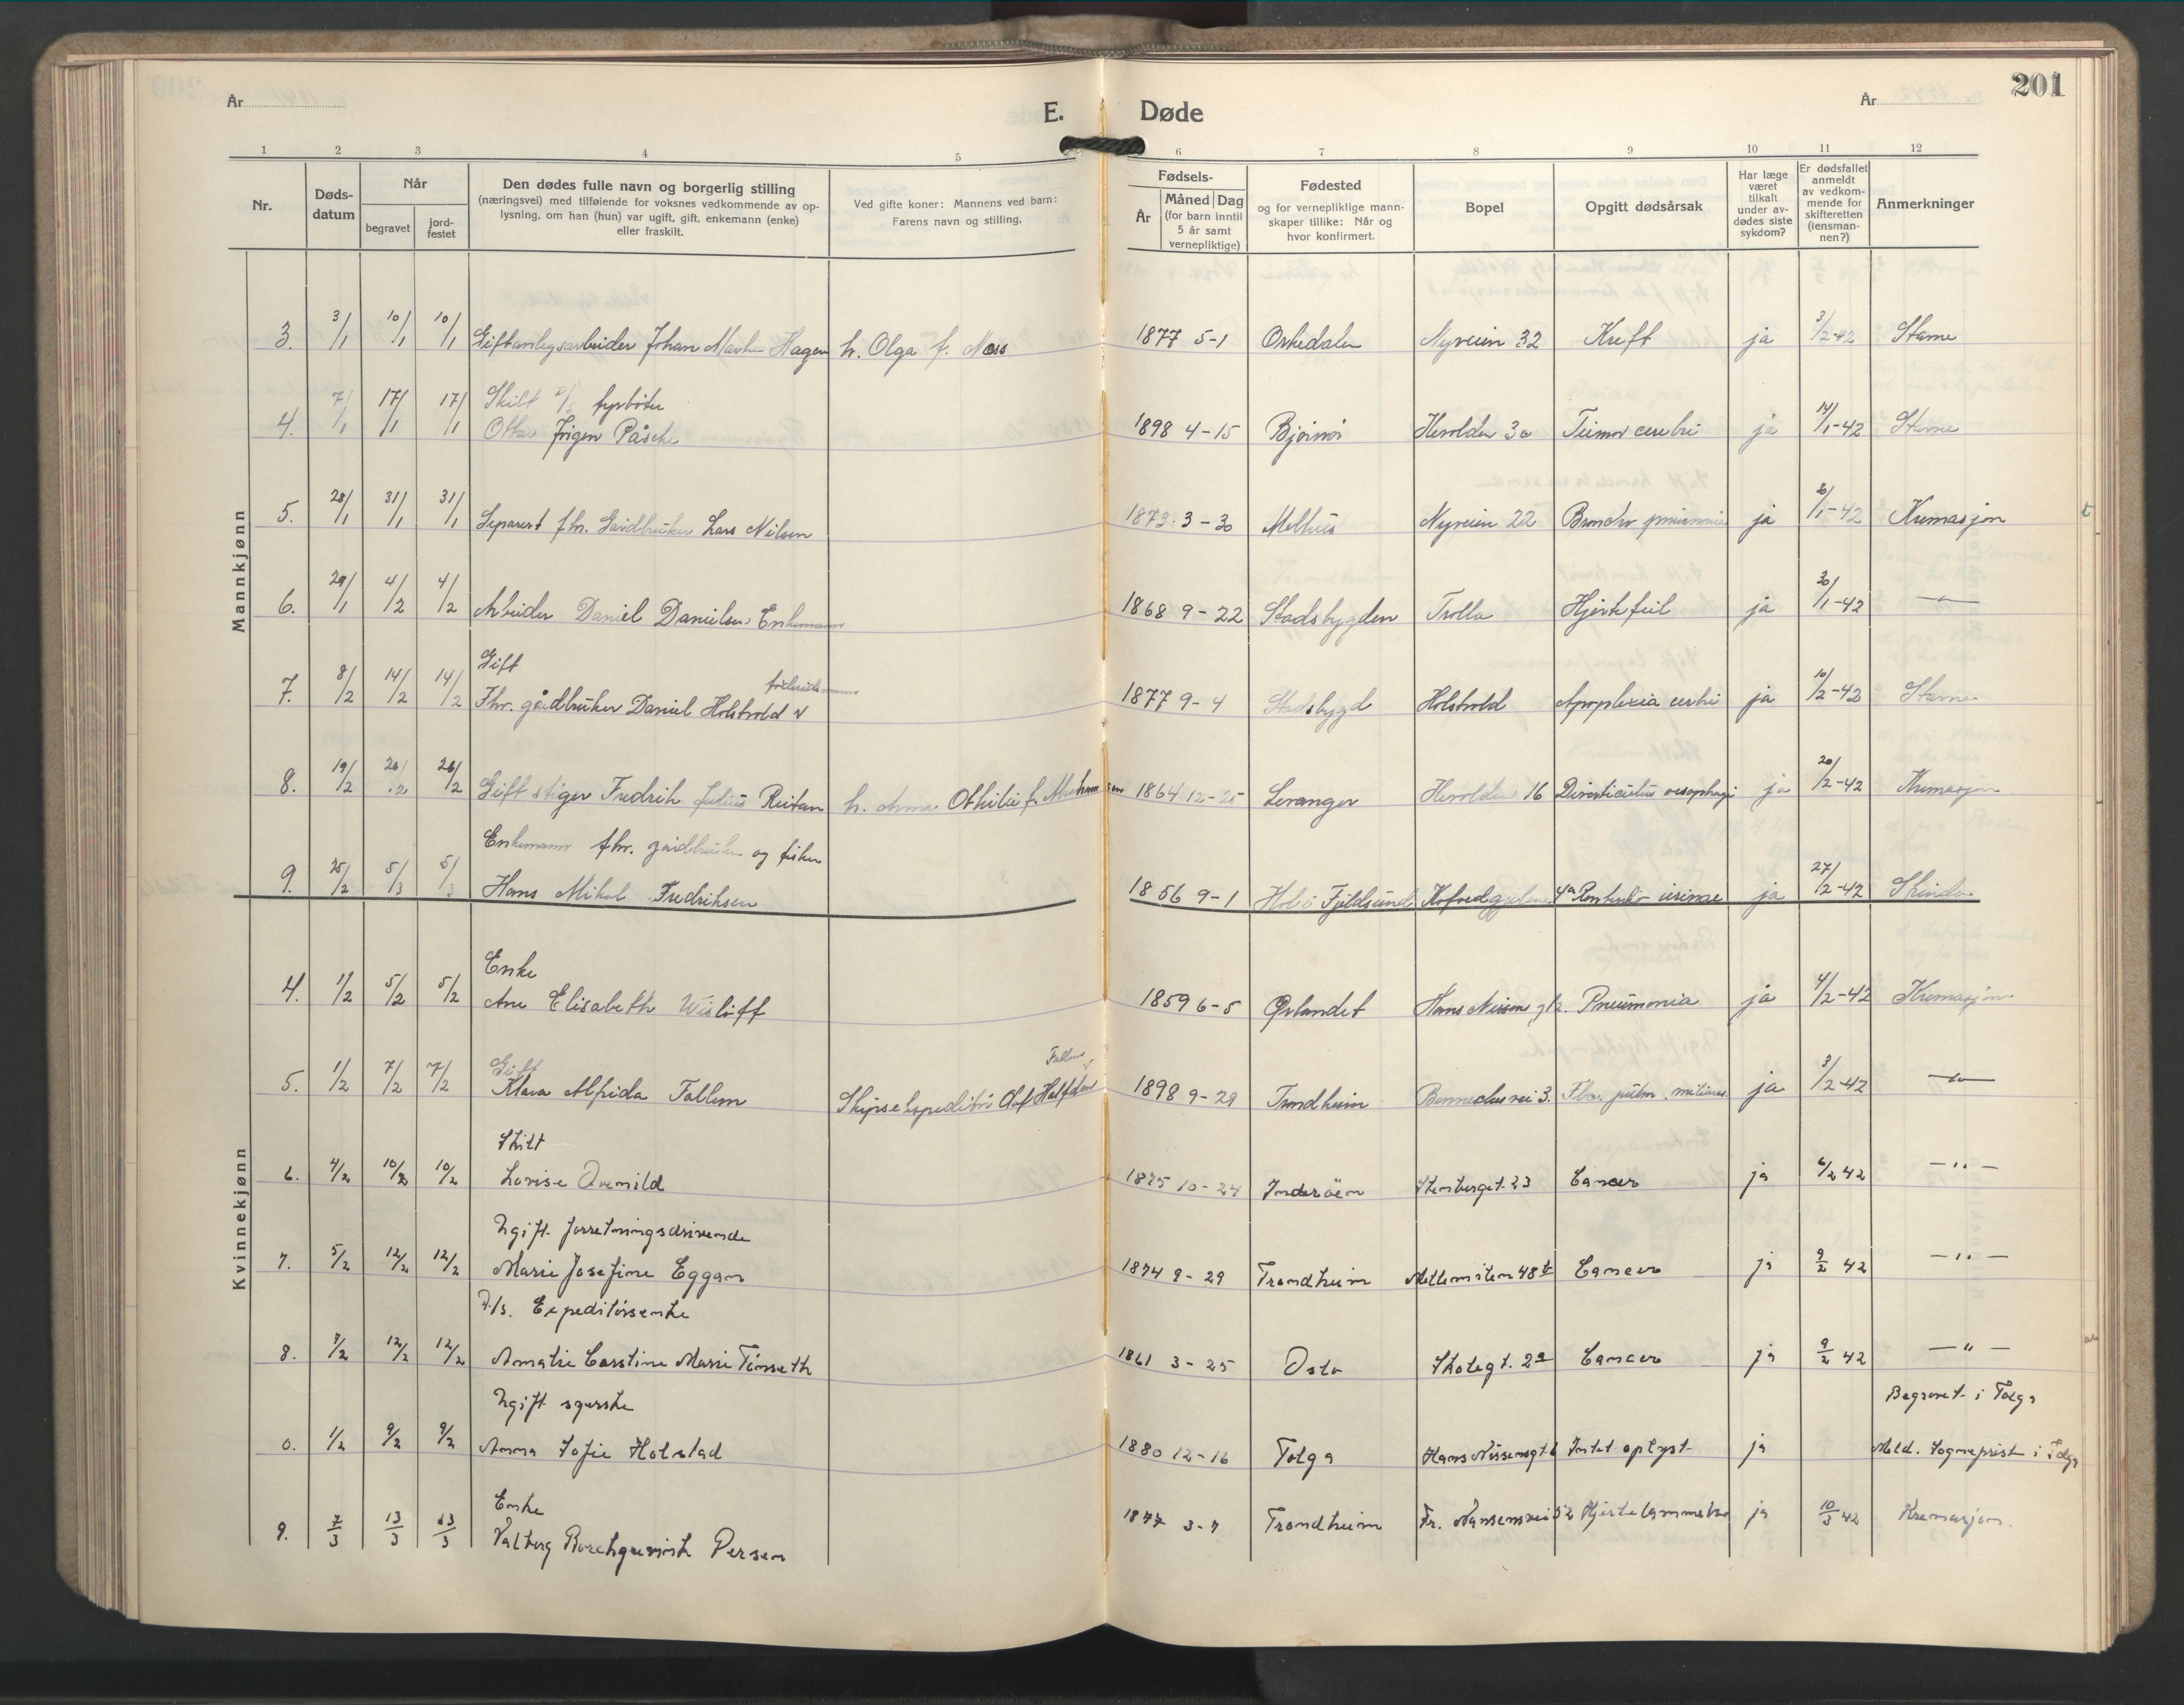 År
E.
Døde
År
201
1 2 3 4 5 6 7 8 9 10 11 12
Nr.
Døds-
datum
Når
begravet
jord-
festet
Den dødes fulle navn og borgerlig stilling
(næringsvei) med tilføiende for voksnes vedkommende av op-
lysning, om han (hun) var ugift, gift, enkemann (enke)
eller fraskilt.
Ved gifte koner: Mannens ved barn:
Farens navn og stilling.
Fødsels-
År
Måned Dag
(for barn inntil
5 år samt
vernepliktige)
Fødested
og for vernepliktige mann-
skaper tillike: Når og
hvor konfirmert.
Bopel
Opgitt dødsårsak
Har læge
været
tilkalt
under av-
dødes siste
sykdom?
Er dødsfallet
anmeldt
av vedkom-
mende for
skifteretten
(lensman-
nen?)
Anmerkninger
Mannkjønn
3. 3/1 10/1 10/1 Gift anlegsarbeider Johan Martin Hagen h. Olga f. Moss 1877 5-1 Orkedalen Nyveien 32 Kreft ja 3/2-42 Stavne
Skilt fyrbøter
4. 7/1 17/1 17/1 Ottar Jørgen Påsche 1898 4-15 Bjørnør 3a Tumor cerebri ja 14/1-42 Stavne
5. 28/1 31/1 31/1 Separert fhv. Gårdbruker Lars Nilsen 1873 3-30 Melhus Nyveien 22 ja /1-42 Kremasjon
6. 29/1 4/2 4/2 Arbeider Daniel Danielsen Enkemann 1868 9-22 Stadsbygden Trolla Hjertefeil ja 30/1-42 —"—
Gift
7. 8/2 14/2 14/2 Fhv. gårdbruker Daniel Holstvold 1877 9-4 Stadsbygd Holstvold Apoplexia cerebri ja 10/2-42 Stavne
8. 19/2 26/2 26/2 Gift stiger Fredrik Julius Reitan h. Anna Othilie f. 1864 12-25 Levanger 16 ja 20/2-42 Kremasjon
Enkemann fhv. gårdbruker og fisker
9. 25/2 5/3 5/3 Hans Mikal Fredriksen 1856 9-1 Hol i Fjeldsund ja 27/2-42
Kvinnekjønn
Enke
4. 1/2 5/2 5/2 Ane Elisabeth Wisløff 1859 6-5 Ørlandet Hans Nissens gt. Pneumonia ja 4/2-42 Kremasjon
Gift
5. 1/2 7/2 7/2 Klara Alfrida Fallem Skipsekspeditør Olaf Halfdan Fallem 1898 9-29 Trondheim 3. ja 3/2-42 —"—
Skilt
6. 4/2 10/2 10/2 Lovise 1875 10-24 Inderøen Stenberget. 23 Cancer ja 6/2 42 —"—
Ugift forretningsdrivende
7. 5/2 12/2 12/2 Marie Josefine Eggan 1874 9-29 Trondheim Mellemilen 48 Cancer ja 9/2 42 —"—
D/s. Expeditørsenke
8. 7/2 12/2 12/2 Amalie Carstine Marie Tønseth 1861 3-25 Oslo Skolegt. 2a Cancer ja 9/2 42 —"—
Ugift syerske
Begravet i Tolga
0. 1/2 9/2 9/2 Anna Sofie Holstad 1880 12-16 Tolga Hans Nissensgt 6 Intet oplyst ja Meld. Sogneprest i Tolga
Enke
9. 7/3 13/3 13/3 Valborg Borchgrevink Persen 1877 3-7 Trondheim Fr. Nansensvei 52 Hjertelammelse ja 10/3 42 Kremasjon.